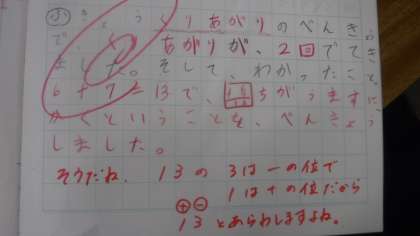 よ きょう くりあがりのべんきょう
で、 あがりが、2回でてき
ました。そして、わかったこと。
6+7=13で、 ちがうますに
かくということを、べんきょう
しました。
そうだね。13の3は一の位で
1は十の位だから
十一
13とあらわしますよね。